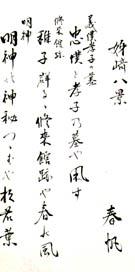 姉崎八景
春帆
義僕孝子の墓
忠僕と孝子乃墓や風
修来館跡
稚子群るゝ修来館跡や春の風
明神
明神や神秘つゝむや杉若葉